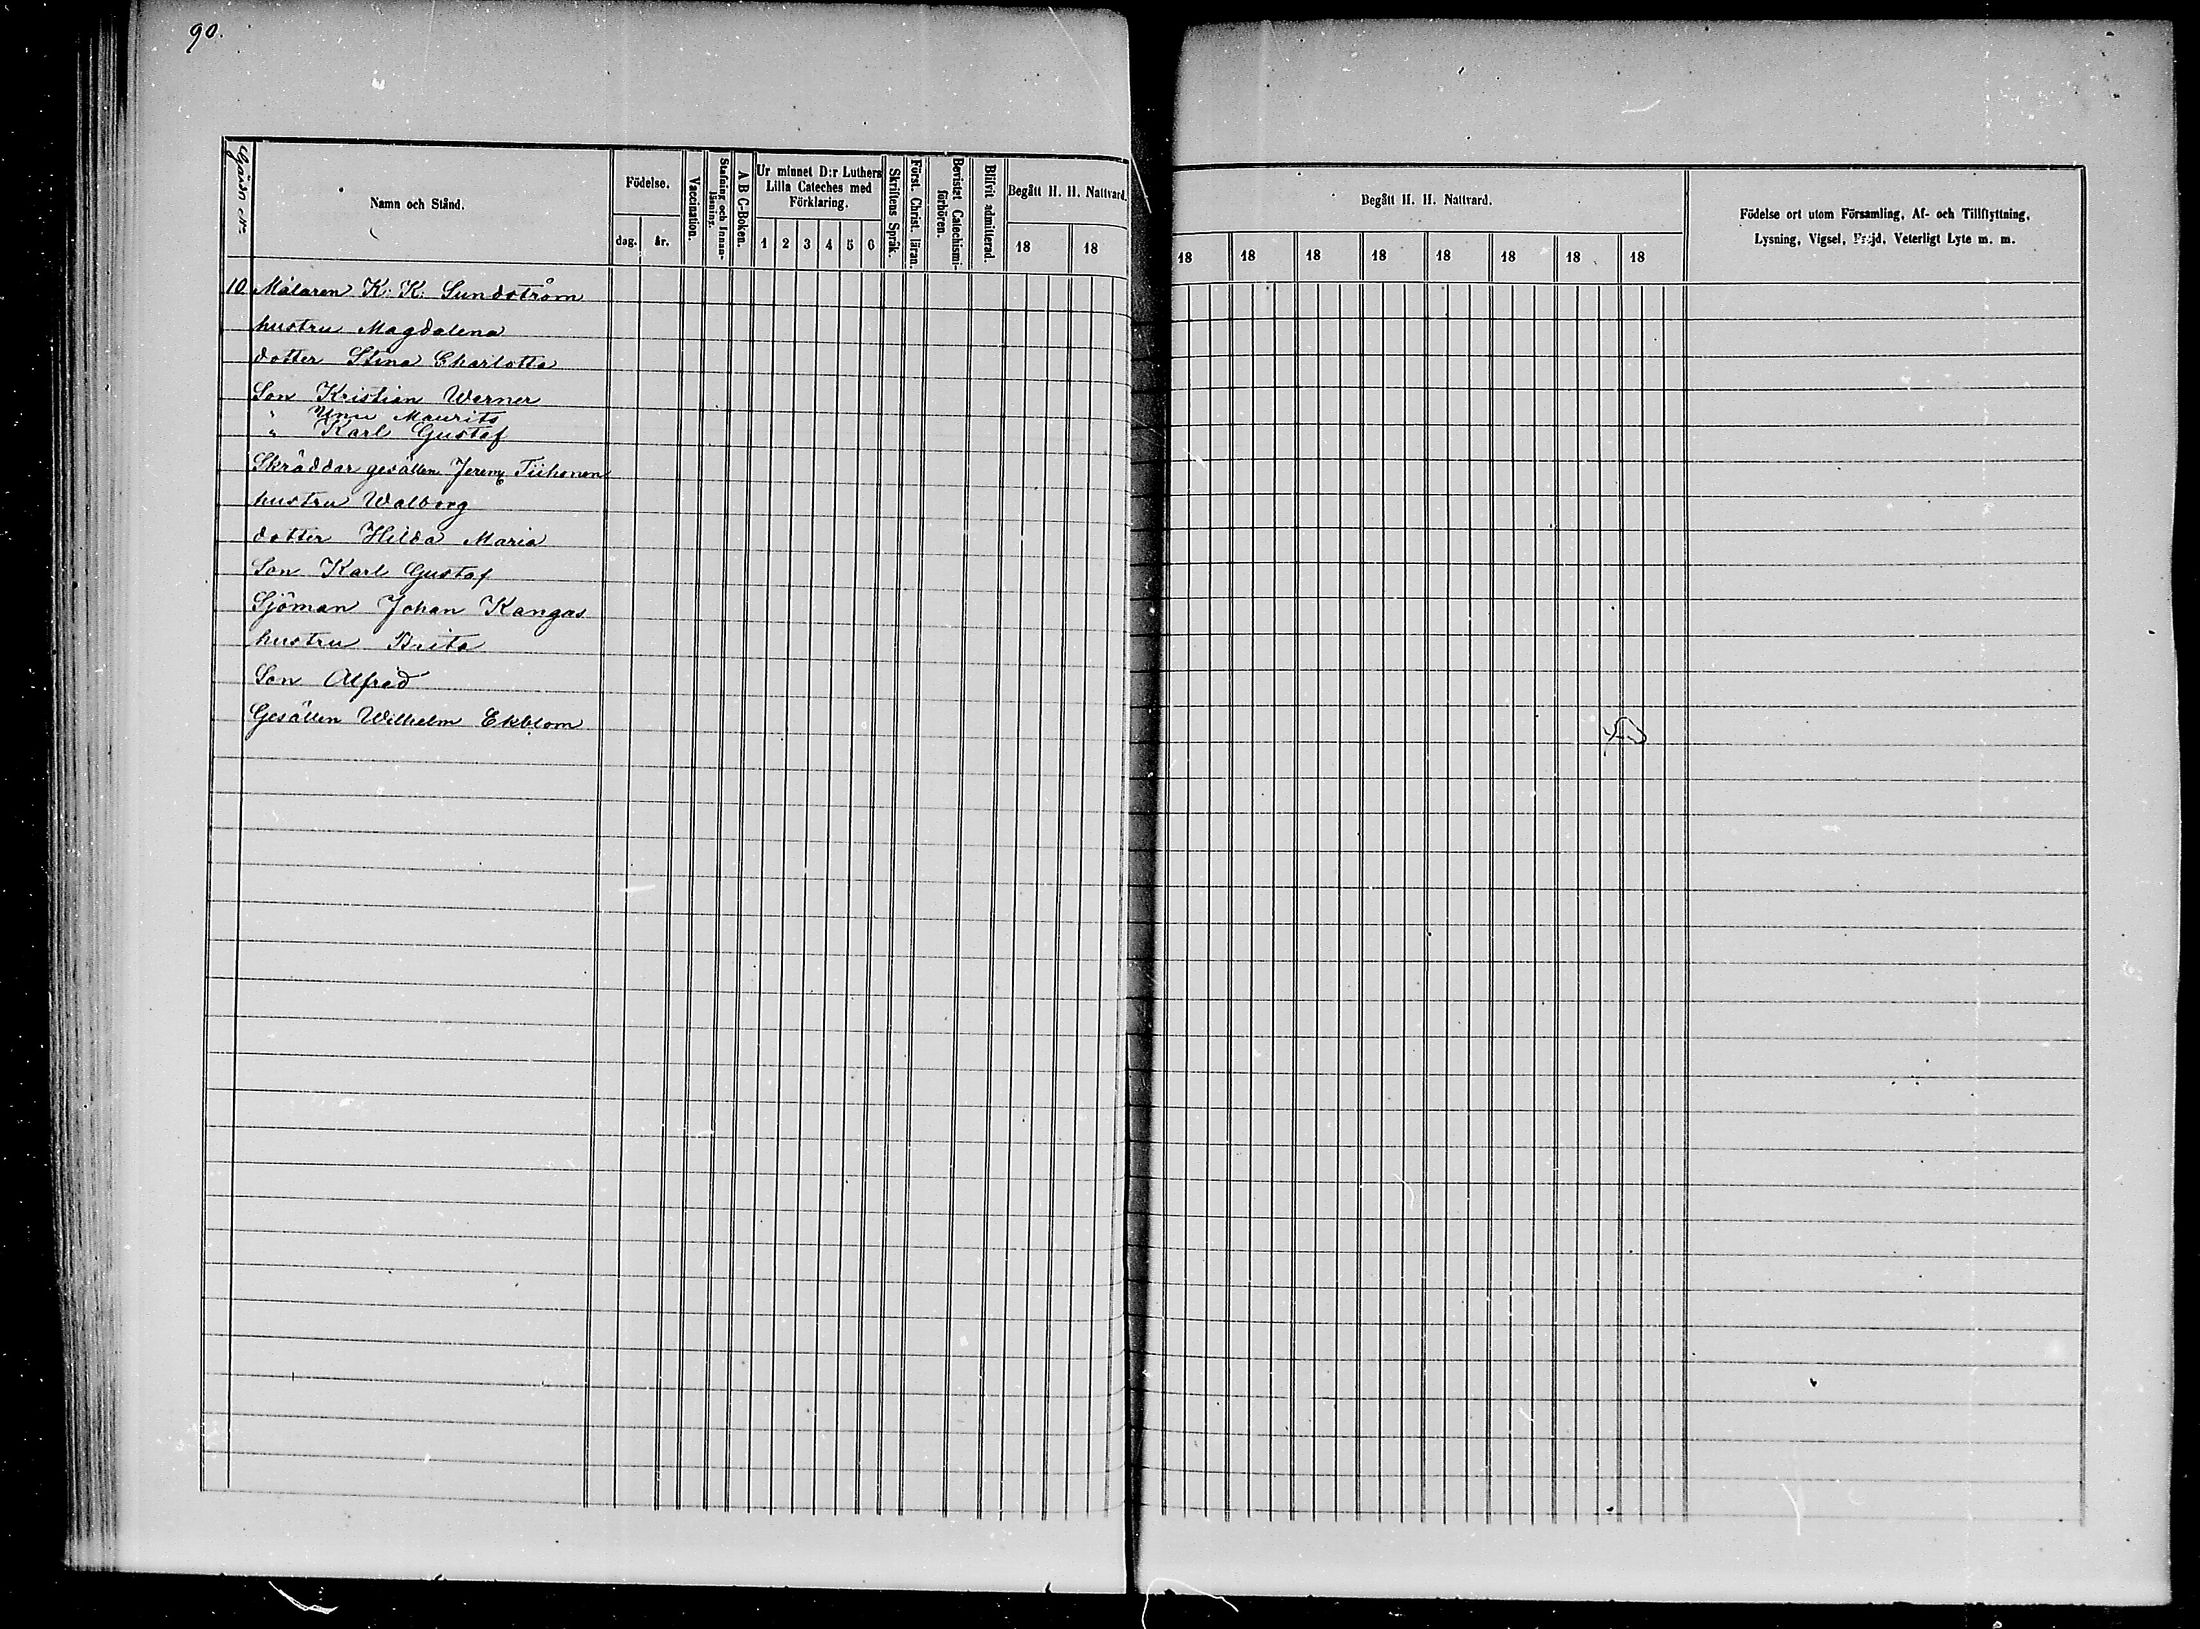 90.
Gårdn Nr
Namn och Stånd.
Födelse.
dag.
år.
Vaccination.
Stafning och Innan-
läsning.
A B C-Boken.
Ur minnet D:r Luthers
Lilla Cateches med
Förklaring.
1 2 3 4 5 6
Skriftens Språk.
Först. Christ. läran.
Bevistat Catechismi-
förhören.
Blifvit admitterad.
Begått H. H. Nattvard.
18 18
Begått H. H. Nattvard.
18 18 18 18 18 18 18 18
Födelse ort utom Församling, Af- och Tillflyttning,
Lysning, Vigsel, Frejd, Veterligt Lyte m. m.
10 Målaren K: K: Sundström
hustru Magdalena
dotter Stina Charlotta
Son Kristian Werner
" Maurits
" Karl Gustaf
Skräddar gesällen Jerem Tiihonen
hustru Walborg
dotter Hilda Maria
Son Karl Gustaf
Sjöman Johan Kangas
hustru Brita
Son Alfred
Gesällen Wilhelm Ekblom